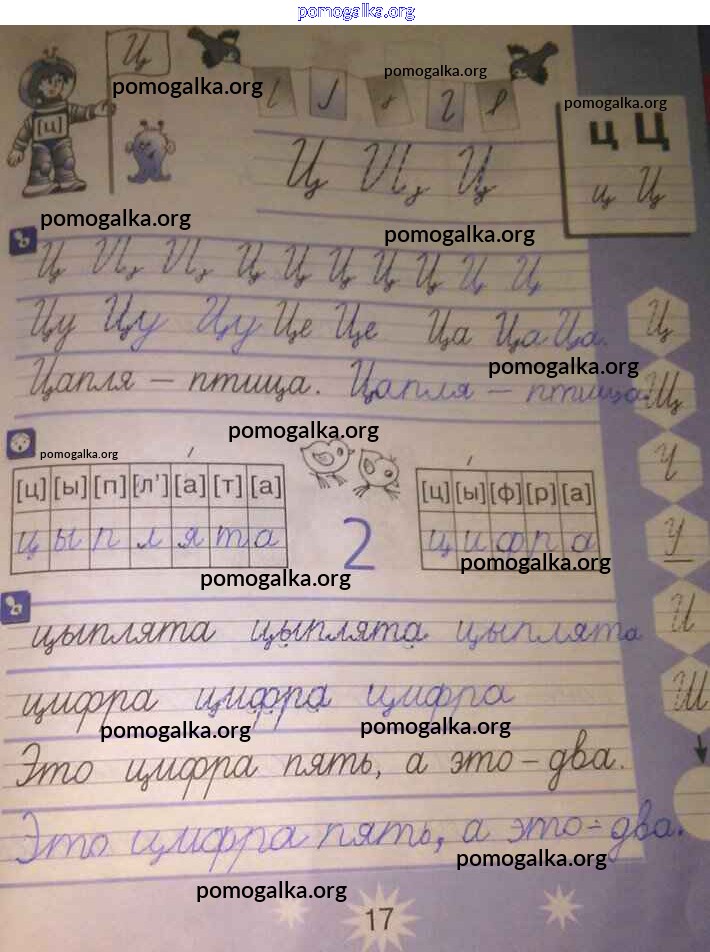 pomogalka.org
Ц
pomogalka.org
pomogalka.org
pomogalka.org
[ц]
ц Ц
Ц Ц Ц
ц Ц
pomogalka.org
pomogalka.org
Ц Ц Ц Ц Ц Ц Ц Ц Ц Ц
Цу Цу Цу Це Це Ца Ца Ца.
Ц
pomogalka.org
Цапля – птица. Цапля – птица.
Щ
pomogalka.org
pomogalka.org
Ч
[ц] [ы] [п] [л'] [а] [т] [а]
[ц] [ы] [ф] [р] [а]
ц ы п л я т а
2
ц и ф р а
У
pomogalka.org
pomogalka.org
цыплята цыплята цыплята
И
цифра цифра цифра
Ш
pomogalka.org
pomogalka.org
Это цифра пять, а это – два.
Это цифра пять, а это – два.
pomogalka.org
pomogalka.org
17